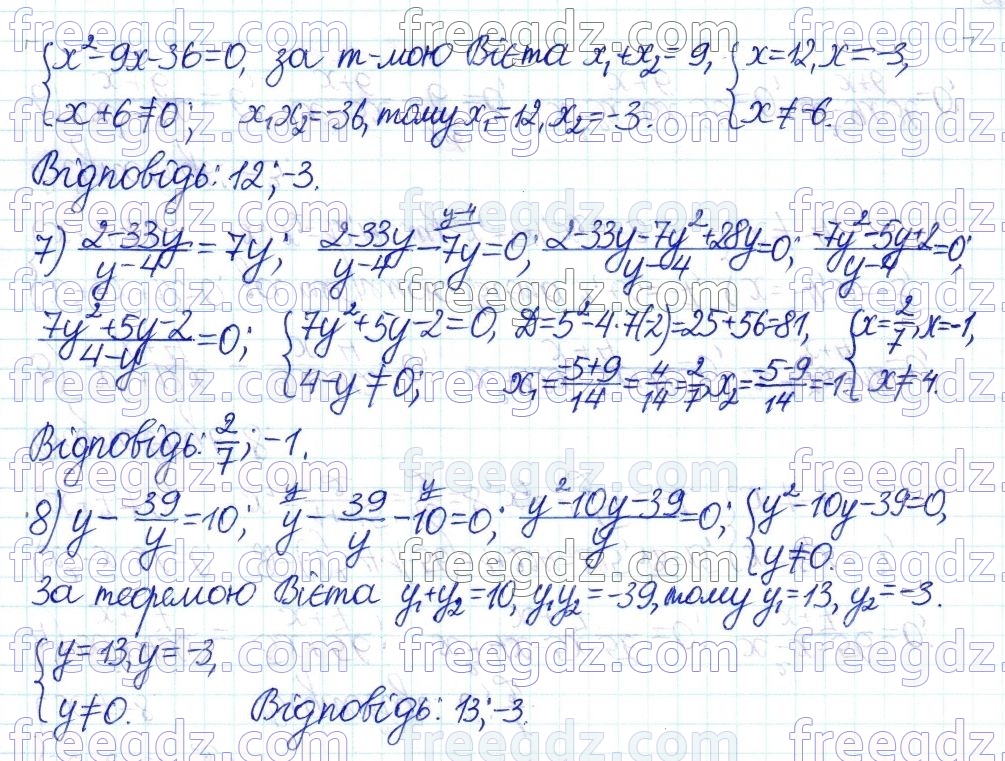 {x²-9x-36=0, за т-мою Вієта x₁+x₂=9, {x=12, x=-3,
{x+6≠0; x₁x₂=-36, тому x₁=12, x₂=-3. {x≠-6.
Відповідь: 12; -3.
7) (2-33y)/(y-4)=7y; (2-33y)/(y-4)-7y^(y-4)=0; (2-33y-7y²+28y)/(y-4)=0; (-7y²-5y+2)/(y-4)=0;
(7y²+5y-2)/(4-y)=0; {7y²+5y-2=0, D=5²-4·7(2)=25+56=81, {x=2/7, x=-1,
{4-y≠0; x₁=(-5+9)/14=4/14=2/7, x₂=(-5-9)/14=-1 {x≠4.
Відповідь: 2/7; -1.
8) y-39/y=10; y^y-39/y-10^y=0; (y²-10y-39)/y=0; {y²-10y-39=0,
{y≠0.
За теоремою Вієта y₁+y₂=10, y₁y₂=-39, тому y₁=13, y₂=-3.
{y=13, y=-3,
{y≠0. Відповідь: 13; -3.
freegdz.com